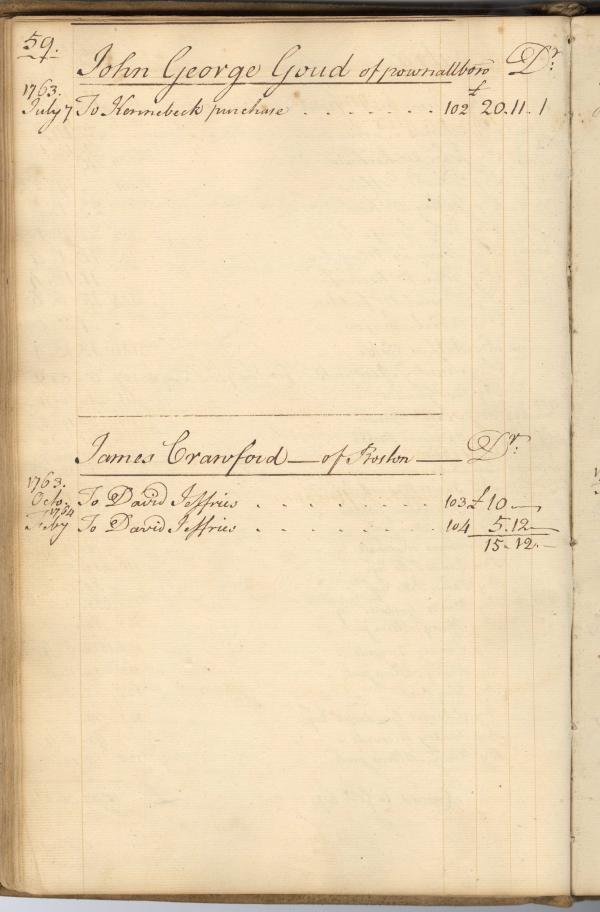 59.
John George Goud of pownallboro Dr.
1763. £
July 7 To Kennebeck purchase . . . . . . . . 102 20. 11. 1
James Crawford — of Boston — Dr.
1763.
Octo. To David Jeffries . . . . . . . . . 103 £ 10 —
1764
Feby To David Jeffries . . . . . . . . . 104 5. 12 —
15. 12. —